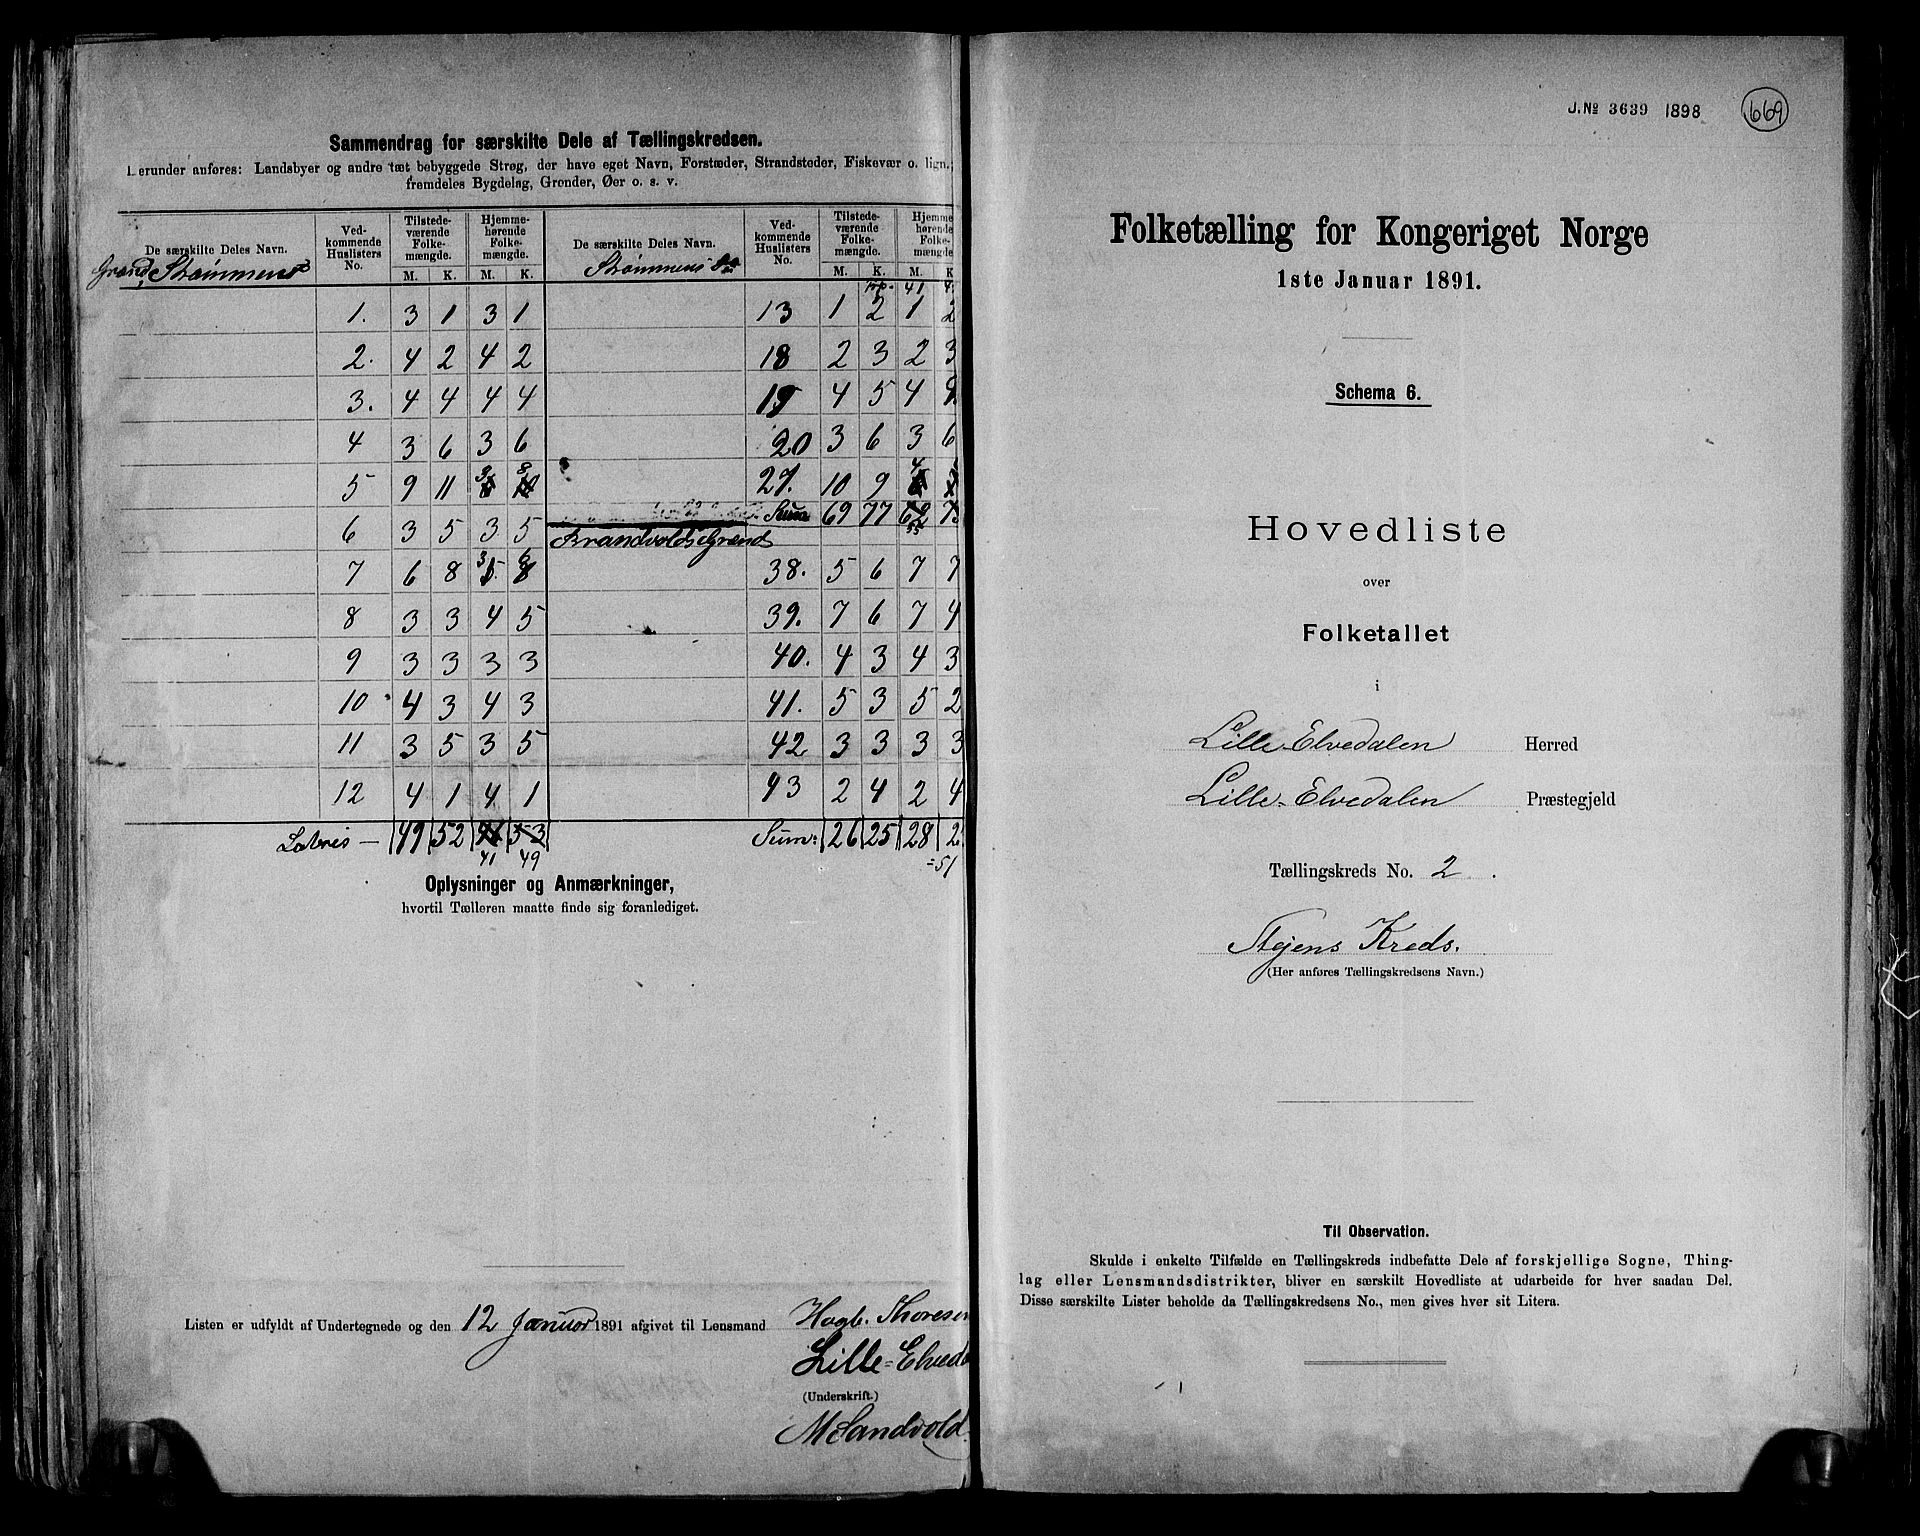 Sammendrag for særskilte Dele af Tællingskredsen.
Herunder anføres: Landsbyer og andre tæt bebyggede Strøg, der have eget Navn, Forstæder, Strandsteder, Fiskevær o. lign.;
fremdeles Bygdelag, Grender, Øer o. s. v.
De særskilte Deles Navn. Vedkommende Huslisters No. Tilstedeværende Folkemængde. M. K. Hjemmehørende Folkemængde. M. K.
Grand Strømmens
1. 3 1 3 1
2. 4 2 4 2
3. 4 4 4 4
4 3 6 3 6
5 9 11 3 8
6 3 5 3 5
7 6 8 3 6
8 3 3 4 5
9 3 3 3 3
10 4 3 4 3
11 3 5 3 5
12 4 1 4 1
Latus — 49 52 53
41 49
De særskilte Deles Navn. Vedkommende Huslisters No. Tilstedeværende Folkemængde. M. K. Hjemme hørende Folke mængde M. K
Strømmens
41
13 1 2 1 2
18 2 3 2 3
19 4 5 4
20 3 6 3 6
27. 10 9 4
Sum 69 77 62
55
Brandvolds Grend
38. 5 6 7 7
39. 7 6 7 4
40. 4 3 4 3
41. 5 3 5 2
42 3 3 3 3
43 2 4 2 4
Sum: 26 25 28 2
=51
Oplysninger og Anmærkninger,
hvortil Tælleren maatte finde sig foranlediget.
Listen er udfyldt af Undertegnede og den 12 Januar 1891 afgivet til Lensmand Hagb. Thoresen
Lille-Elveda
(Underskrift.)
M Sandvold
J.No 3639 1898 669
Folketælling for Kongeriget Norge
1ste Januar 1891.
Schema 6.
Hovedliste
over
Folketallet
i
Lille-Elvedalen Herred
Lille-Elvedalen Præstegjeld
Tællingskreds No. 2.
Stejens Kreds.
(Her anføres Tællingskredsens Navn.)
Til Observation.
Skulde i enkelte Tilfælde en Tællingskreds indbefatte Dele af forskjellige Sogne, Thing-
lag eller Lensmandsdistrikter, bliver en særskilt Hovedliste at udarbeide for hver saadan Del.
Disse særskilte Lister beholde da Tællingskredsens No., men gives hver sit Litera.